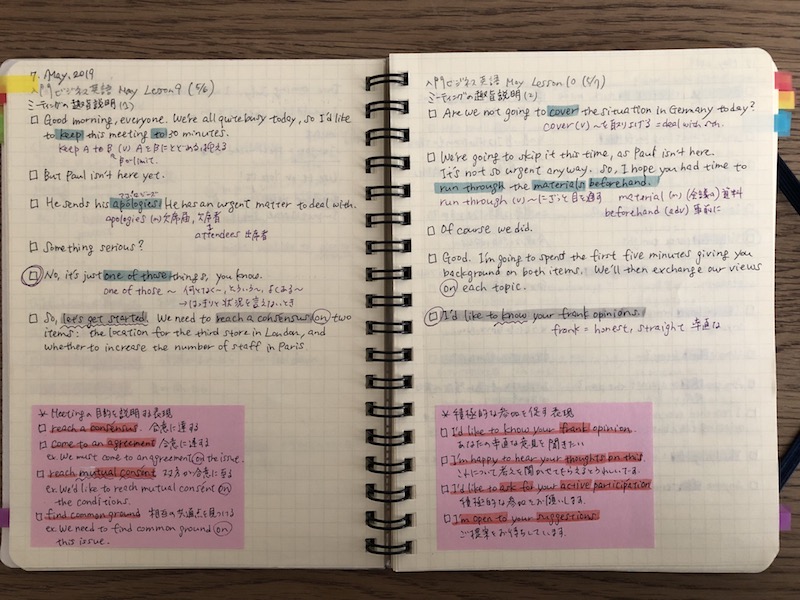 7. May, 2019
入門ビジネス英語 May Lesson 9 (5/6)
ミーティングの趣旨説明(1)
□ Good morning, everyone. We're all quite busy today, so I'd like
to keep this meeting to 30 minutes.
keep A to B (v) AをBにとどめる、抑える
Bがlimit.
□ But Paul isn't here yet.
□ He sends his apologies. He has an urgent matter to deal with.
apologies (n) 欠席届、欠席者
attendees 出席者
□ Something serious?
□ No, it's just one of those things, you know.
one of those ~ 何となく~、という~、よくある~
→はっきりと状況を言えないとき
□ So, let's get started. We need to reach a consensus on two
items: the location for the third store in London, and
whether to increase the number of staff in Paris
* Meetingの目的を説明する表現
□ reach a consensus. 合意に達する
□ come to an agreement 合意に達する
ex. We must come to an agreement on the issue.
□ reach mutual consent 双方が合意に至る
ex. We'd like to reach mutual consent on
the conditions.
□ find common ground 相互の共通点を見つける
ex. We need to find common ground on
this issue.
入門ビジネス英語 May Lesson 10 (5/7)
ミーティングの趣旨説明(2)
□ Are we not going to cover the situation in Germany today?
cover (v) ~を取り上げる = deal with sth.
□ We're going to skip it this time, as Paul isn't here.
It's not so urgent anyway. So, I hope you had time to
run through the materials beforehand.
run through (v) ~にざっと目を通す material (n) (会議の)資料
beforehand (adv) 事前に
□ Of course we did.
□ Good. I'm going to spent the first five minutes giving you
background on both items. We'll then exchange our views
on each topic.
□ I'd like to know your frank opinions.
frank = honest, straight 率直な
* 積極的な参加を促す表現
□ I'd like to know your frank opinion.
あなたの率直な意見を聞きたい
□ I'm happy to hear your thoughts on this.
これについて考えを聞かせてもらえるとうれしいです.
□ I'd like to ask for your active participation
積極的な参加をお願いします.
□ I'm open to your suggestions
ご提案をお待ちしています.